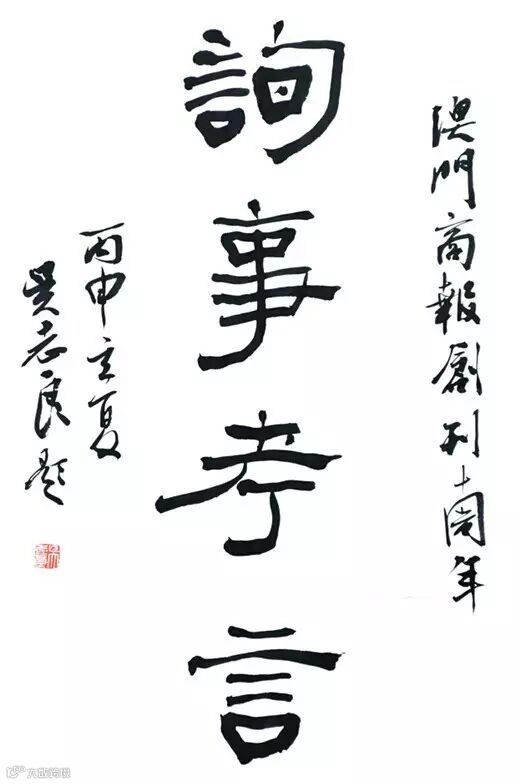 澳門商報創刊十周年
詢事考言
丙申立夏
吳志良題